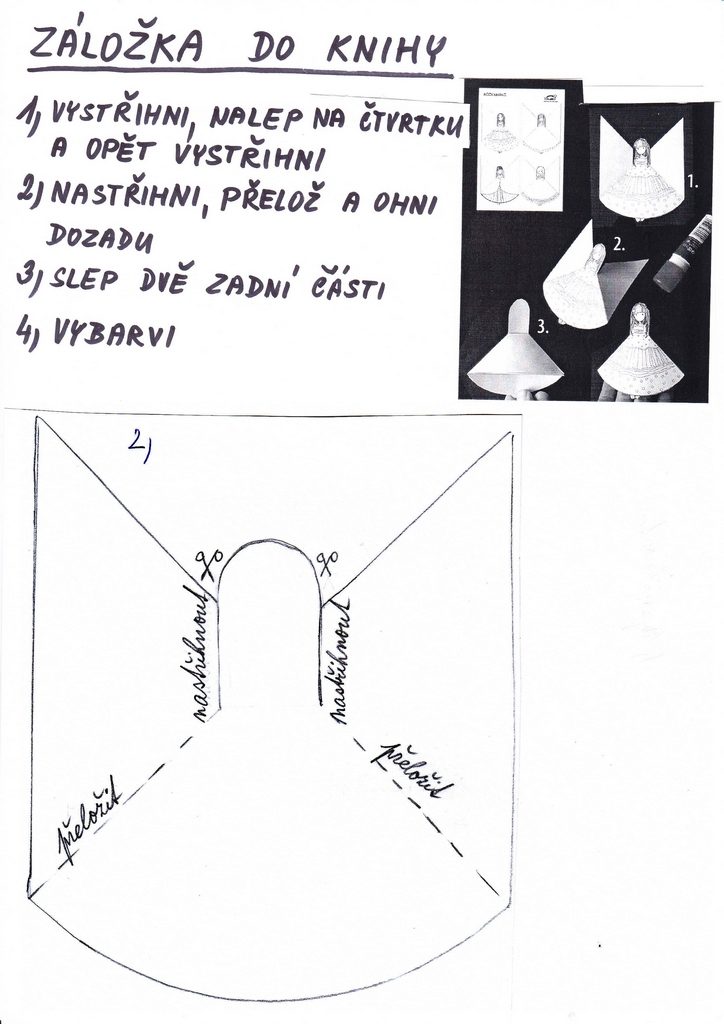 ZÁLOŽKA DO KNIHY
1, VYSTŘIHNI, NALEP NA ČTVRTKU
A OPĚT VYSTŘIHNI
2, NASTŘIHNI, PŘELOŽ A OHNI
DOZADU
3, SLEP DVĚ ZADNÍ ČÁSTI
4, VYBARVI
1.
2.
3.
2,
nastřihnout
nastřihnout
přeložit
přeložit